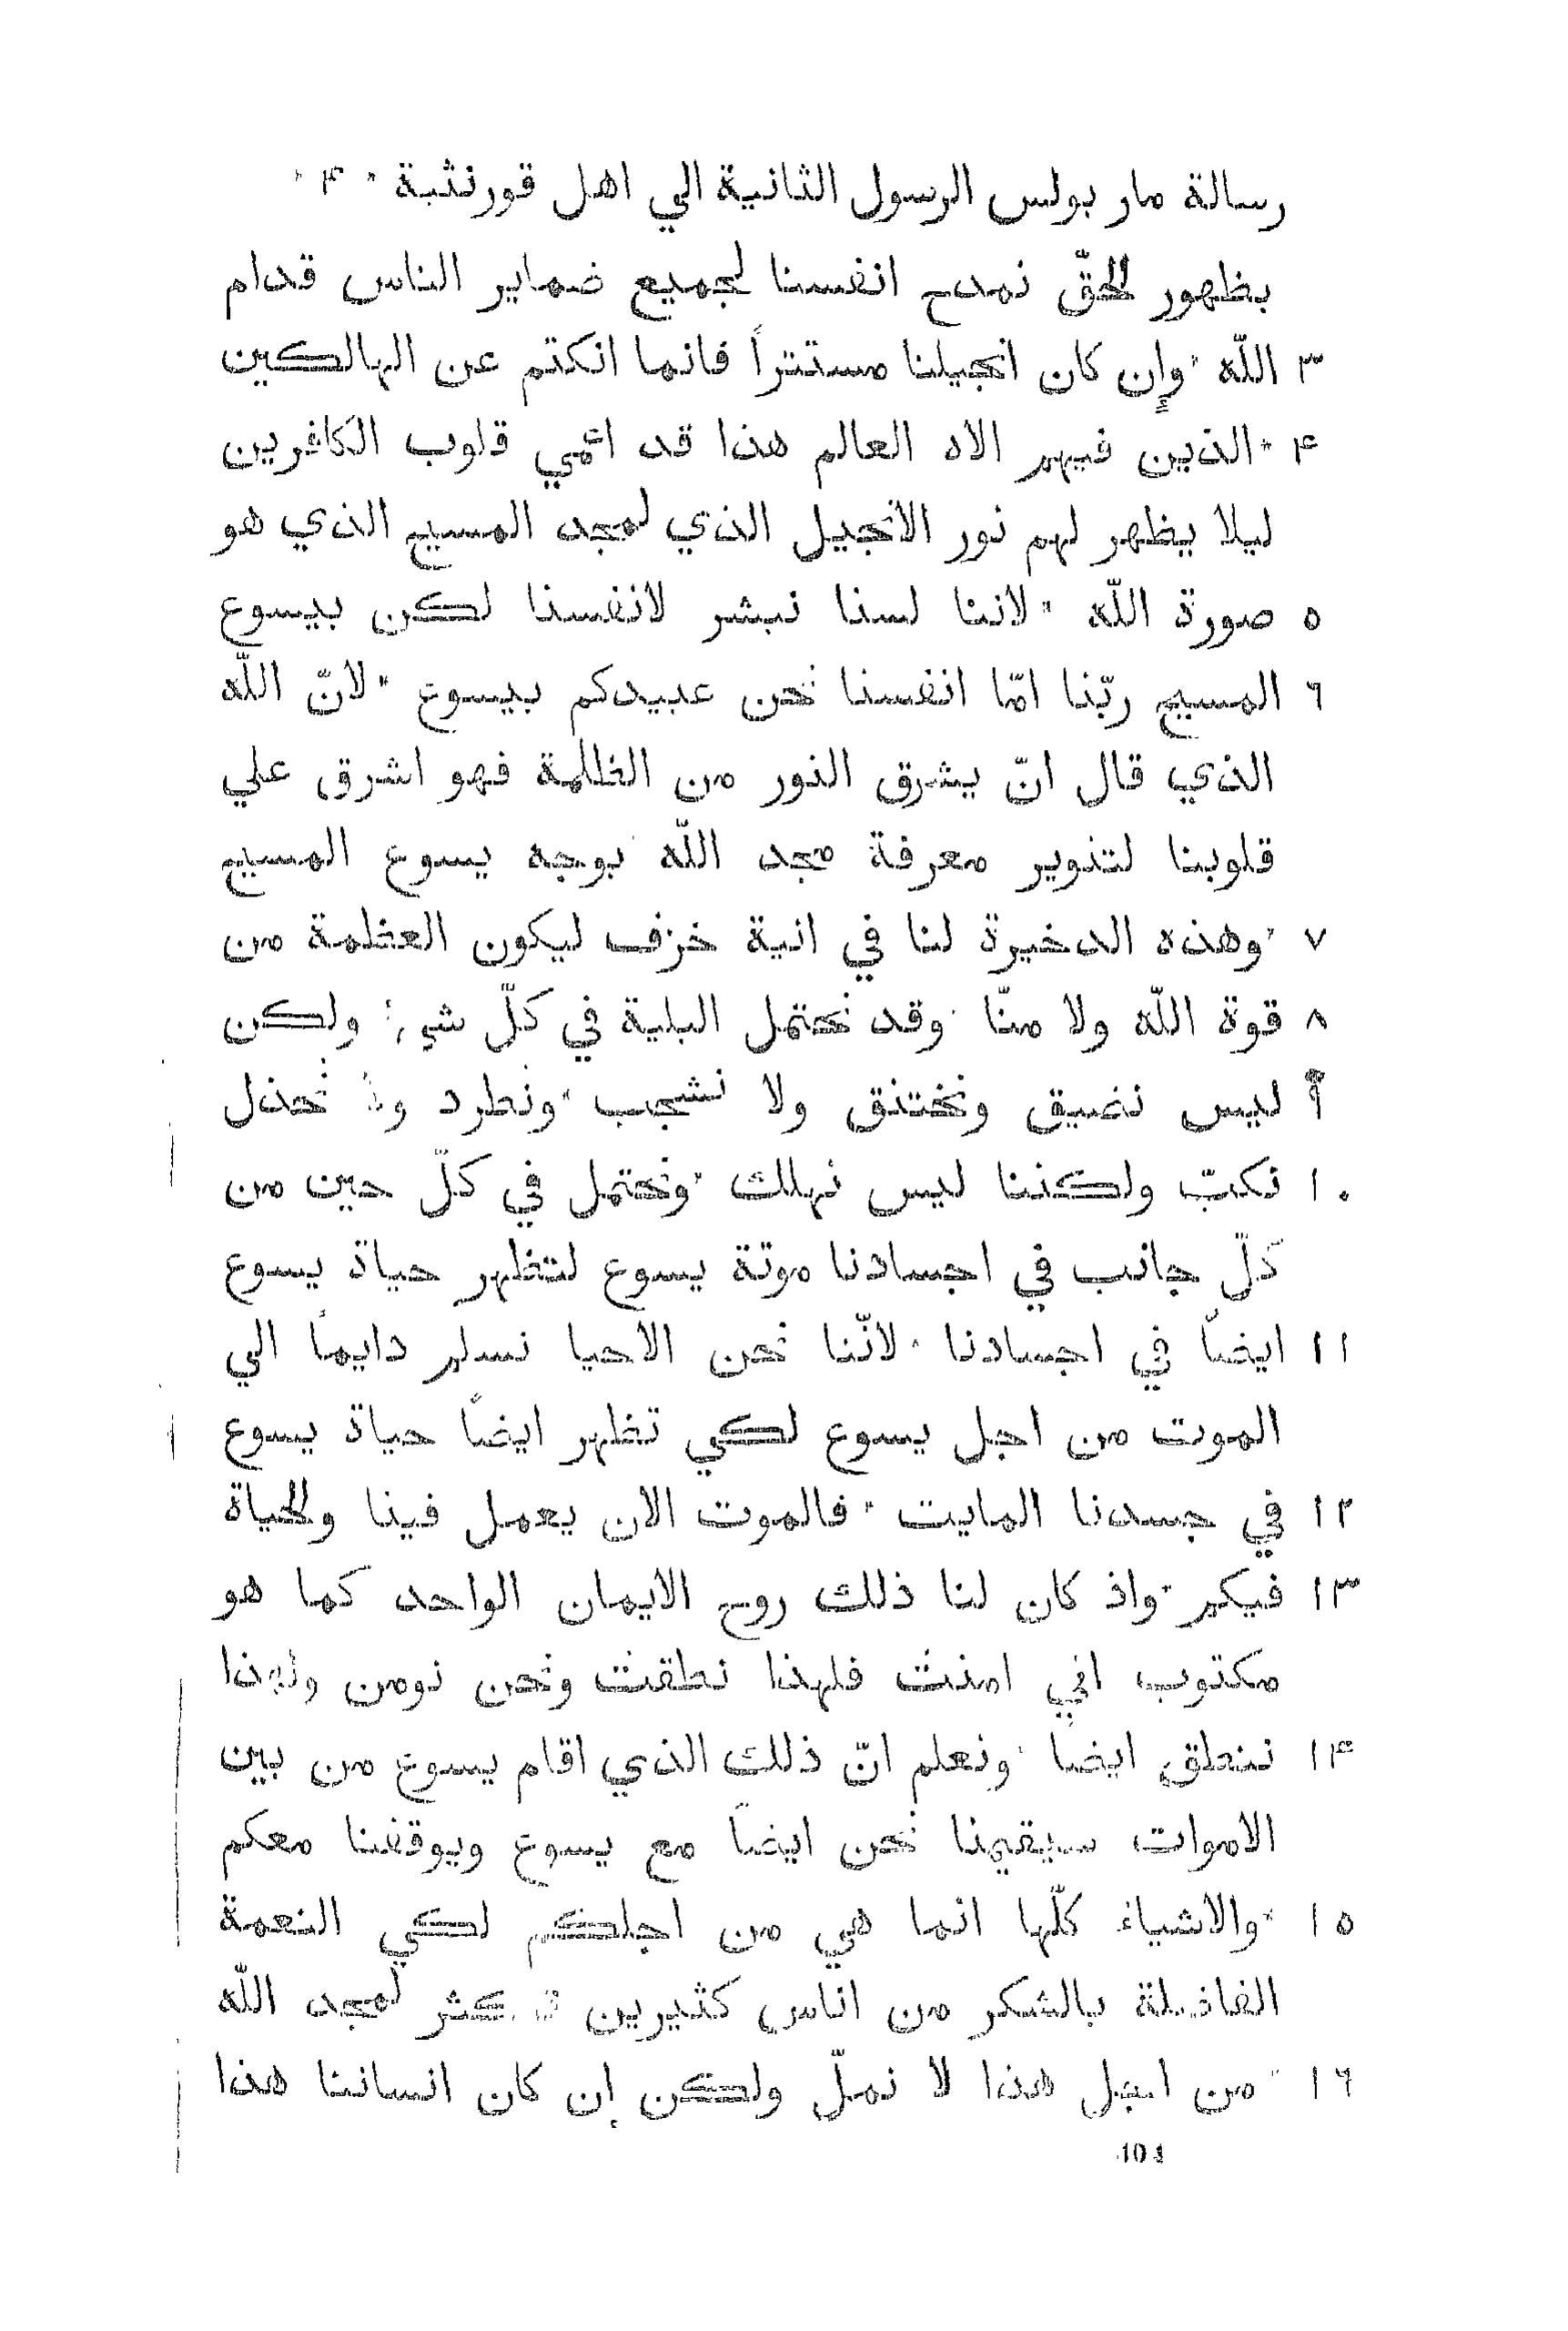 رسالة مار بولس الرسول الثانية الي اهل قورنثية * ۴ *
بظهور الحقّ نمدح انفسنا لجميع ضماير الناس قدام
٣ اللّه * وإن كان انجيلنا مستتراً فانما انكتم عن الهالكين
۴ * الذين فيهم الاه العالم هذا قد اعمي قلوب الكافرين
ليلا يظهر لهم نور الانجيل الذي لمجد المسيح الذي هو
٥ صورة اللّه * لاننا لسنا نبشر لانفسنا لكن بيسوع
٦ المسيح ربّنا امّا انفسنا نحن عبيدكم بيسوع * لانّ اللّه
الذي قال انّ يشرق النور من الظلمة فهو اشرق علي
قلوبنا لتنوير معرفة مجد اللّه بوجه يسوع المسيح
٧ * وهذه الدخيرة لنا في انية خزف ليكون العظمة من
٨ قوة اللّه ولا منّا * وقد نحتمل البلية في كلّ شيء ولكن
٩ ليس نضيق ونختنق ولا نشجب * ونطرد ولا نخذل
١٠ نكبّ ولكننا ليس نهلك * ونحتمل في كلّ حين من
كلّ جانب في اجسادنا موتة يسوع لتظهر حياة يسوع
١١ ايضاً في اجسادنا * لانّنا نحن الاحيا نسلم دايماً الي
الموت من اجل يسوع لكي تظهر ايضاً حياة يسوع
١٢ في جسدنا المايت * فالموت الان يعمل فينا والحياة
١٣ فيكم * واذ كان لنا ذلك روح الايمان الواحد كما هو
مكتوب اني امنت فلهذا نطقت ونحن نومن ولهذا
١۴ ننطق ايضاً * ونعلم انّ ذلك الذي اقام يسوع من بين
الاموات سيقيمنا نحن ايضاً مع يسوع ويوقفنا معكم
١٥ * والاشياء كلّها انما هي من اجلكم لكي النعمة
الفاضلة بالشكر من اناس كثيرين تكثر لمجد اللّه
١٦ * من اجل هذا لا نملّ ولكن إن كان انساننا هذا